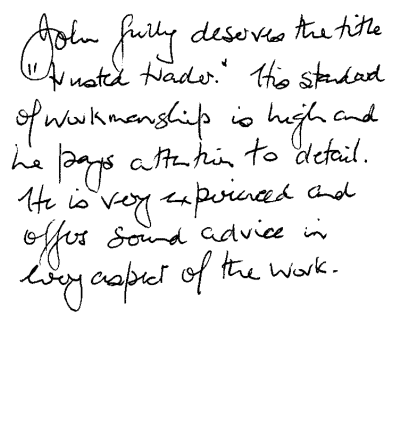 John Gully deserves the title
"trusted trader." His standard
of workmanship is high and
he pays attention to detail.
He is very experienced and
offers sound advice in
every aspect of the work.